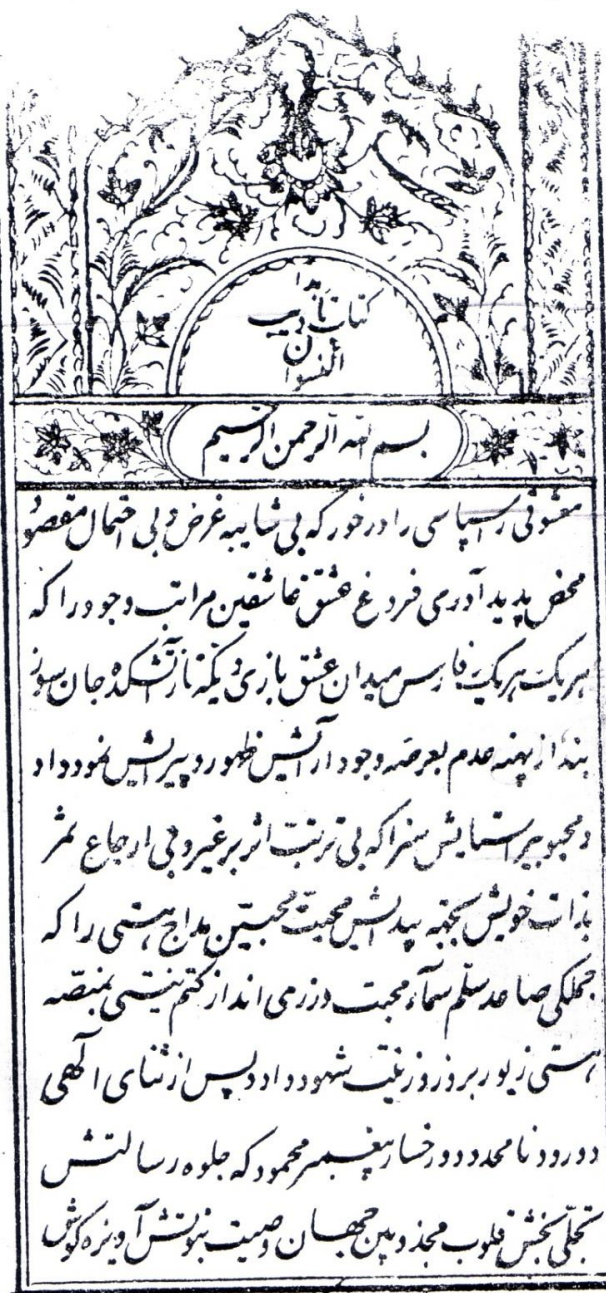 هذا
کتاب تأدیب
النسوان
بسم الله الرحمن الرحیم
معشوقی را سپاسی درخور که بی شایبه غرض و بی احتمال مقصود
محض پدید آوری فروغ عشق عاشقین مراتب وجود را که
هریک هریک فارس میدان عشق بازی و یکه تاز آتشکده جان سوز
بند از پهنه عدم بعرصه وجود آرایش ظهور و پیرایش نمود داد
و محبوبیرا ستایش سزا که بی ترتب اثر بر غیر و بی ارجاع ثمر
بذات خویش پیدایش محبت محبین مدارج هستی را که
جملگی صاعد سلم سماء محبت از کتم نیستی بمنصه
هستی زیور بروز و زینت شهود داد و پس از ثنای الهی
درود نامحدود رخسار پیغمبر محمود که جلوه رسالتش
تجلی بخش قلوب مجذوبین جهان و صیت نبوتش آویزه گوش